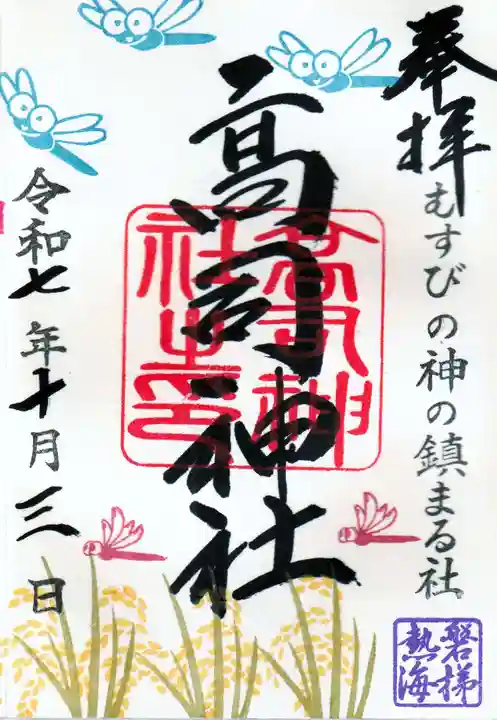 奉拝
むすびの神の鎮まる社
高司神社
高司神社之印
令和七年十月三日
磐梯熱海